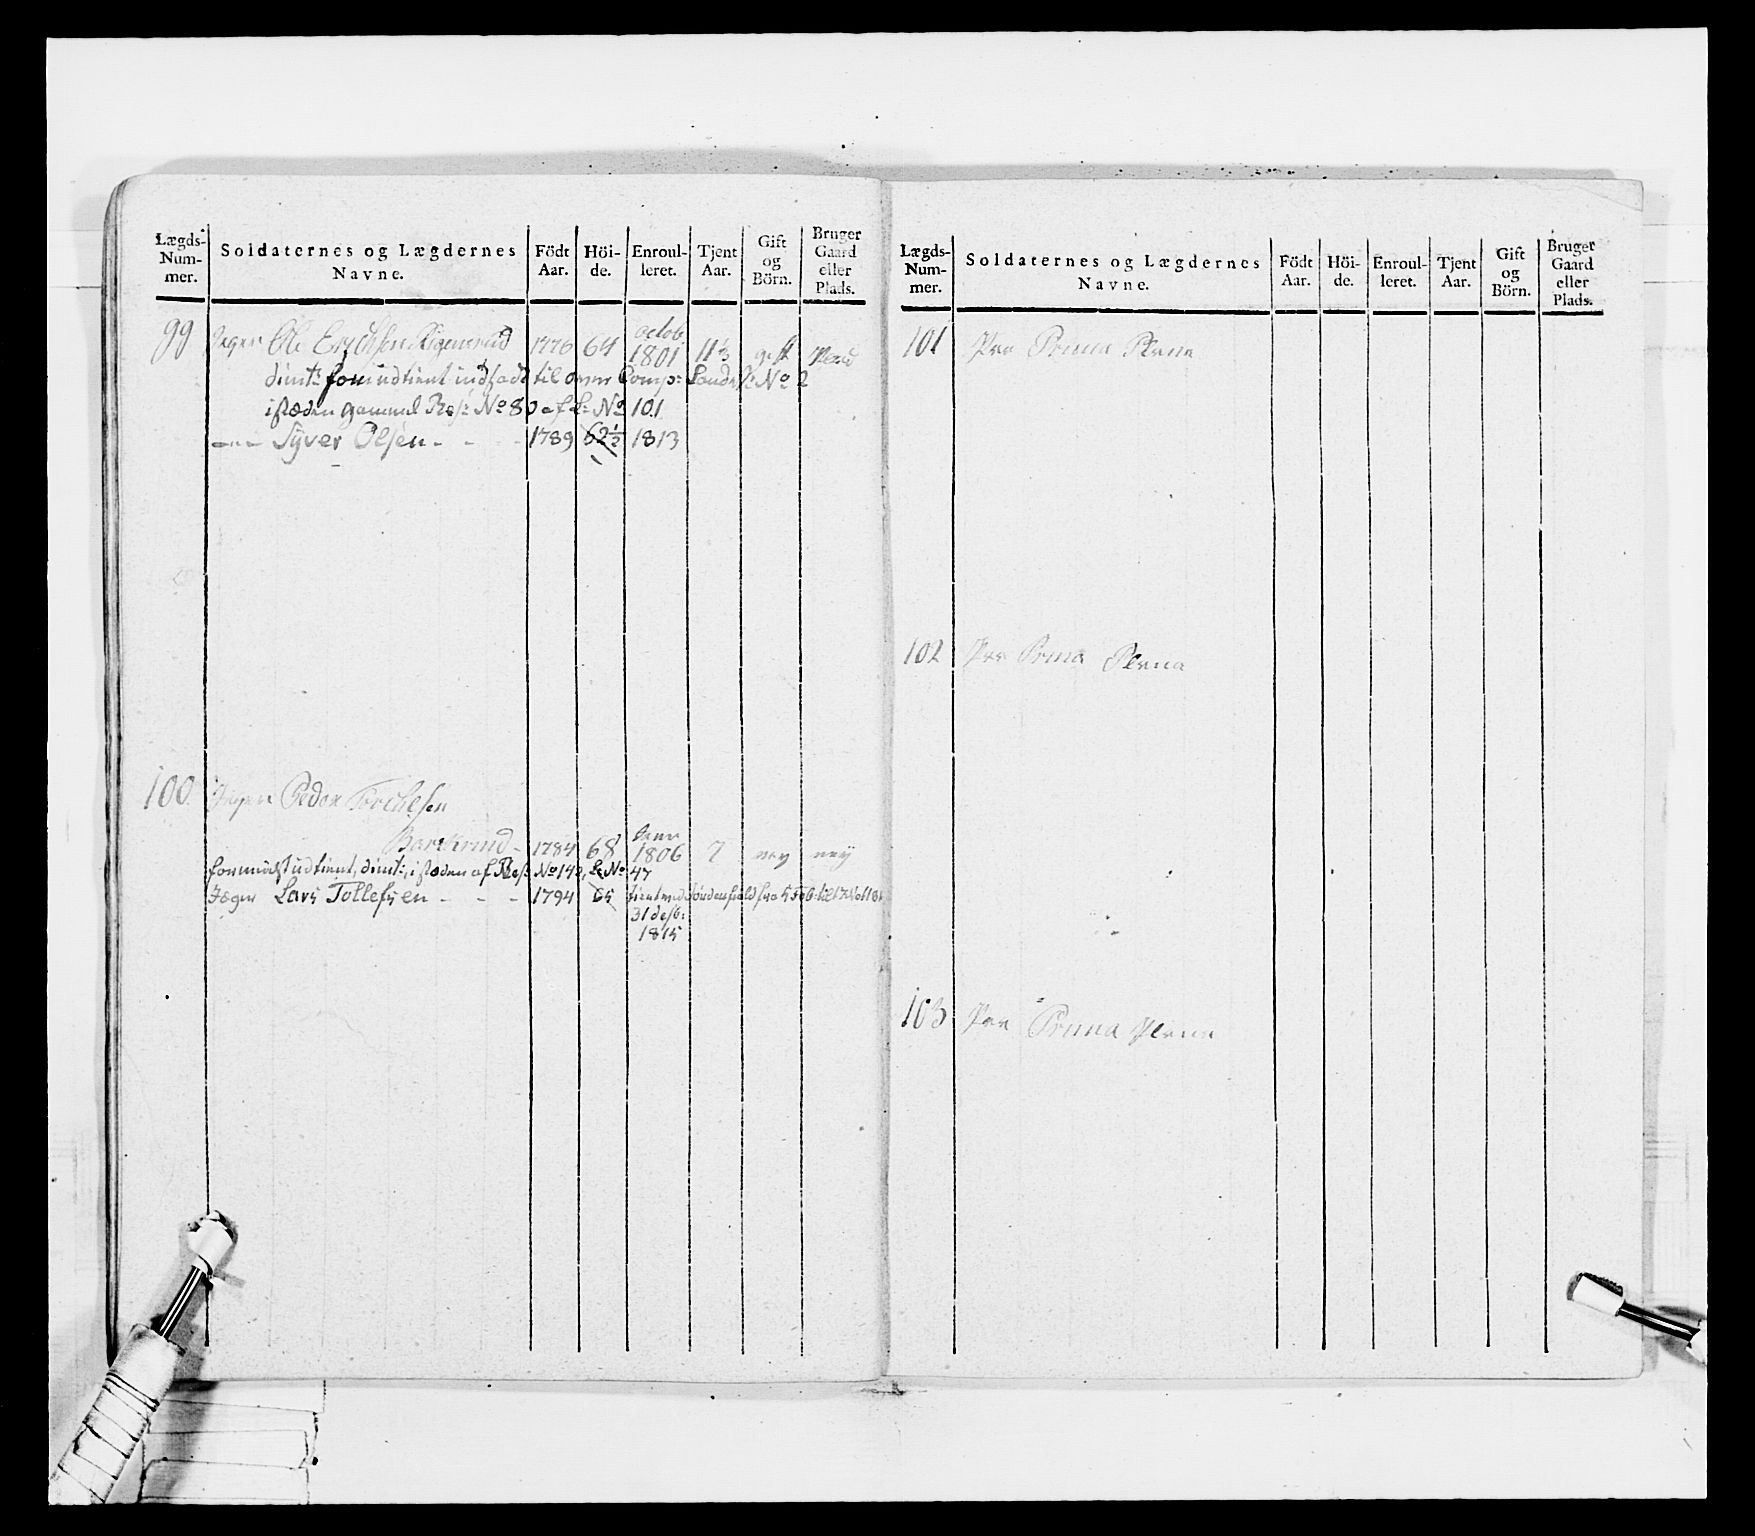 Lægds-Num-mer. Soldaternes og Lægdernes Navne. Födt Aar. Höi-de. Enroul-leret. Tjent Aar. Gift og Börn. Bruger Gaard eller Plads.
99 Jeger Ole Erichsen 1776 64 octob 1801 11 gift
dimt: som udtient indsadt til Comp: № 2
isteden gammel Res: № 80 af L: № 101
Syver Olsen - - - 1789 62½ 1813
100 Jeger Peder
1784 68 1806 7 ney ney
udtient, dimt:, isteden af Res: № 142, L: № 47
Jæger Lars Tollefsen - - - 1794 65 fra 5 Feb: til
31 desb:
1815
Lægds-Num-mer. Soldaternes og Lægdernes Navne. Födt Aar. Höi-de. Enroul-leret. Tjent Aar. Gift og Börn. Bruger Gaard eller Plads.
101 Pro Prima Plana
102 Pro Prima Plana
103 Pro Prima Plana